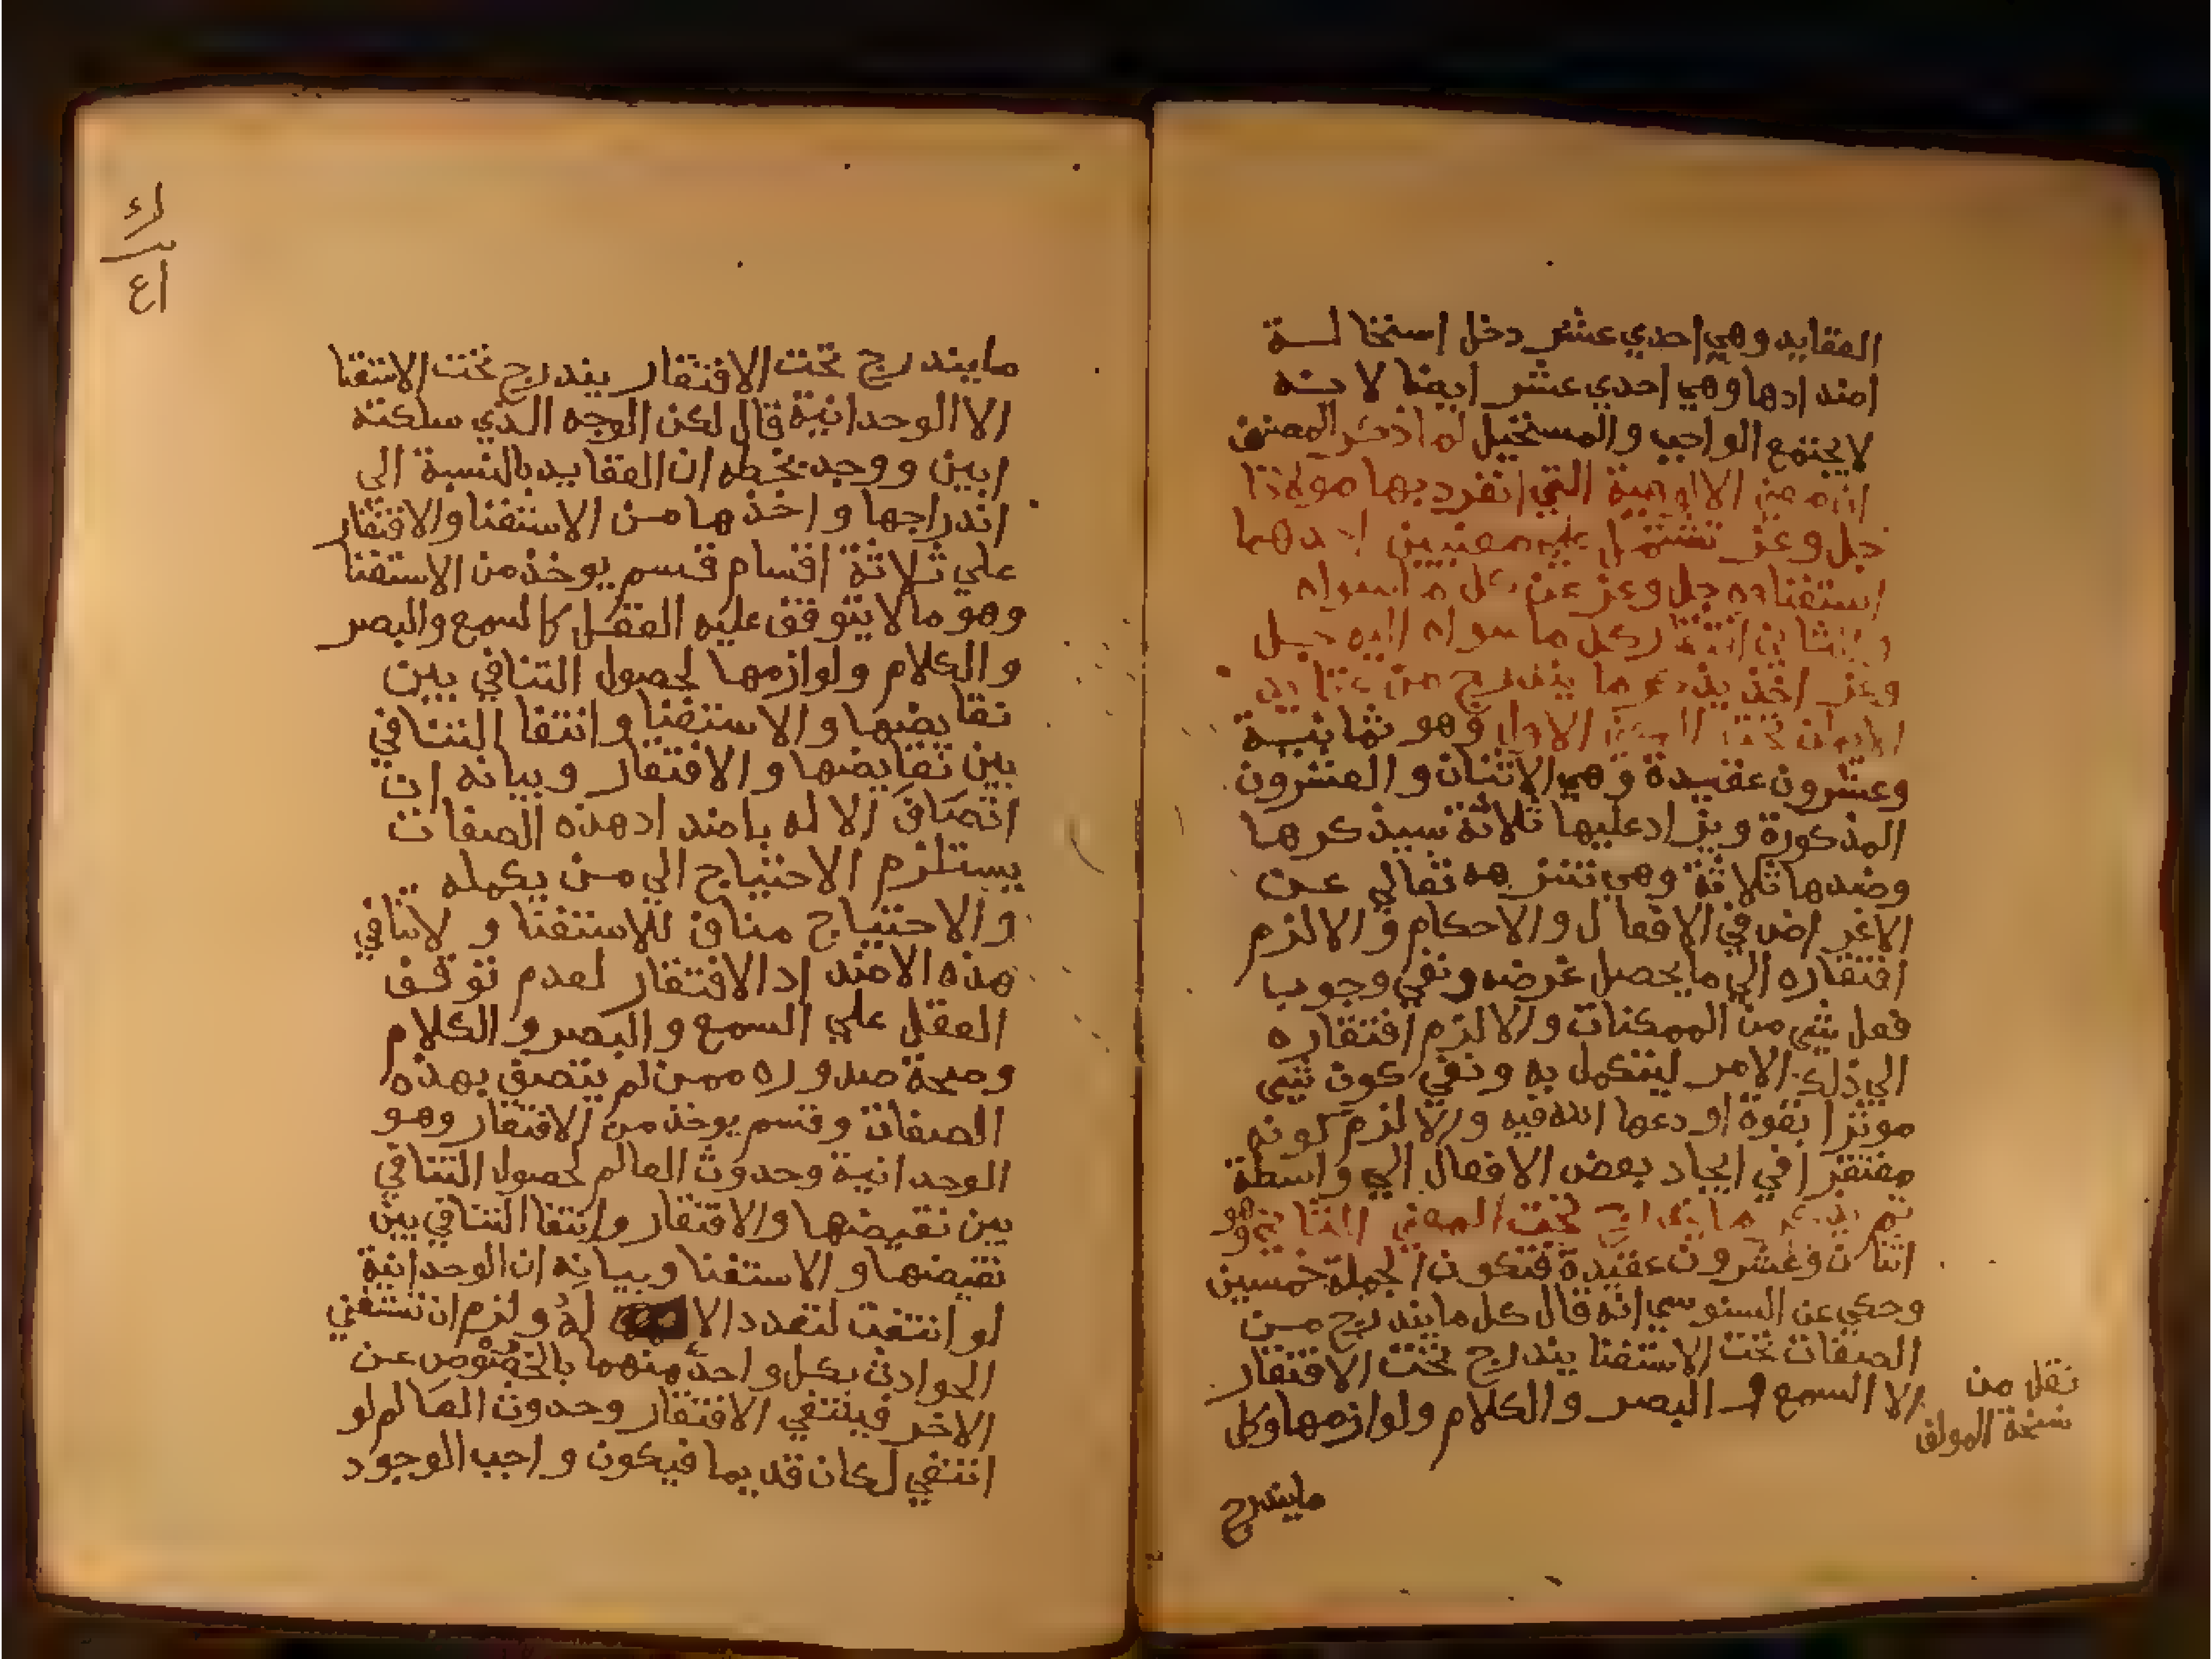 العقايد وهي احدي عشر دخل استحالة
اضدادها وهي احدي عشر ايضا لانه
لا يجتمع الواجب والمستحيل لما ذكر المصنف
ان معني الالوهية التي انفرد بها مولانا
جل وعز تشتمل علي معنيين احدهما
استغناوه جل وعز عن كل ما سواه
والثاني افتقار كل ما سواه اليه جل
وعز اخذ يذكر ما يندرج من عقايد
الايمان تحت المعني الاول وهو ثمانية
وعشرون عقيدة وهي الاثنان والعشرون
المذكورة ويزاد عليها ثلاثة سيذكرها
وضدها ثلاثة وهي تنزهه تعالي عن
الاغراض في الافعال والاحكام والا لزم
افتقاره الي ما يحصل غرضه ونفي وجوب
فعل شي من الممكنات والا لزم افتقاره
الي ذلك الامر ليتكمل به ونفي كون شي
موثرا بقوة اودعها الله فيه والا لزم كونه
مفتقرا في ايجاد بعض الافعال الي واسطة
ثم يذكر ما يندرج تحت المعني الثاني وهو
اثنان وعشرون عقيدة فتكون الجملة خمسين
وحكي عن السنوسي انه قال كل ما يندرج من
الصفات تحت الاستغنا يندرج تحت الافتقار
الا السمع والبصر والكلام ولوازمها وكل
نقل من
نسخة المولف
مايندرج
ما يندرج تحت الافتقار يندرج تحت الاستغنا
الا الوحدانية قال لكن الوجه الذي سلكته
ابين ووجد بخطه ان العقايد بالنسبة الي
اندراجها واخذها من الاستغنا والافتقار
علي ثلاثة اقسام قسم يوخذ من الاستغنا
وهو ما لا يتوقف عليه العقل كالسمع والبصر
والكلام ولوازمها لحصول التنافي بين
نقايضها والاستغنا وانتفا التنافي
بين نقايضها والافتقار وبيانه ان
اتصاف الاله باضداد هذه الصفات
يستلزم الاحتياج الي من يكمله
والاحتياج مناف للاستغنا ولا تنافي
هذه الاضداد الافتقار لعدم توقف
العقل علي السمع والبصر والكلام
وصحة صدوره ممن لم يتصف بهذه
الصفات وقسم يوخذ من الافتقار وهو
الوحدانية وحدوث العالم لحصول التنافي
بين نقيضها والافتقار وانتفا التنافي بين
نقيضها والاستغنا وبيانه ان الوحدانية
لو انتفت لتعدد الا له ولزم ان تستغني
الحوادث بكل واحد منهما بالخصوص عن
الاخر فينتفي الافتقار وحدوث العالم لو
انتفي لكان قديما فيكون واجب الوجود